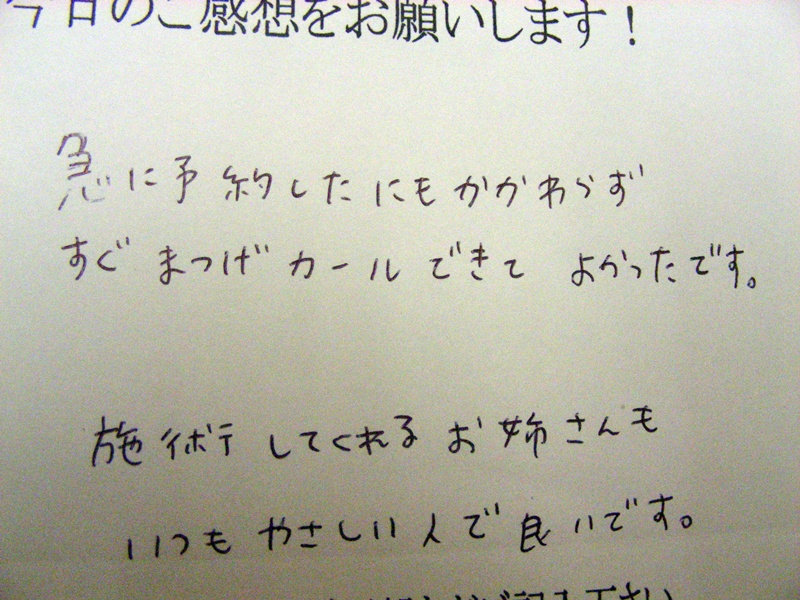 今日のご感想をお願いします！
急に予約したにもかかわらず
すぐ まつげ カール できて よかったです。
施術 してくれる お姉さんも
いつも やさしい人で 良いです。